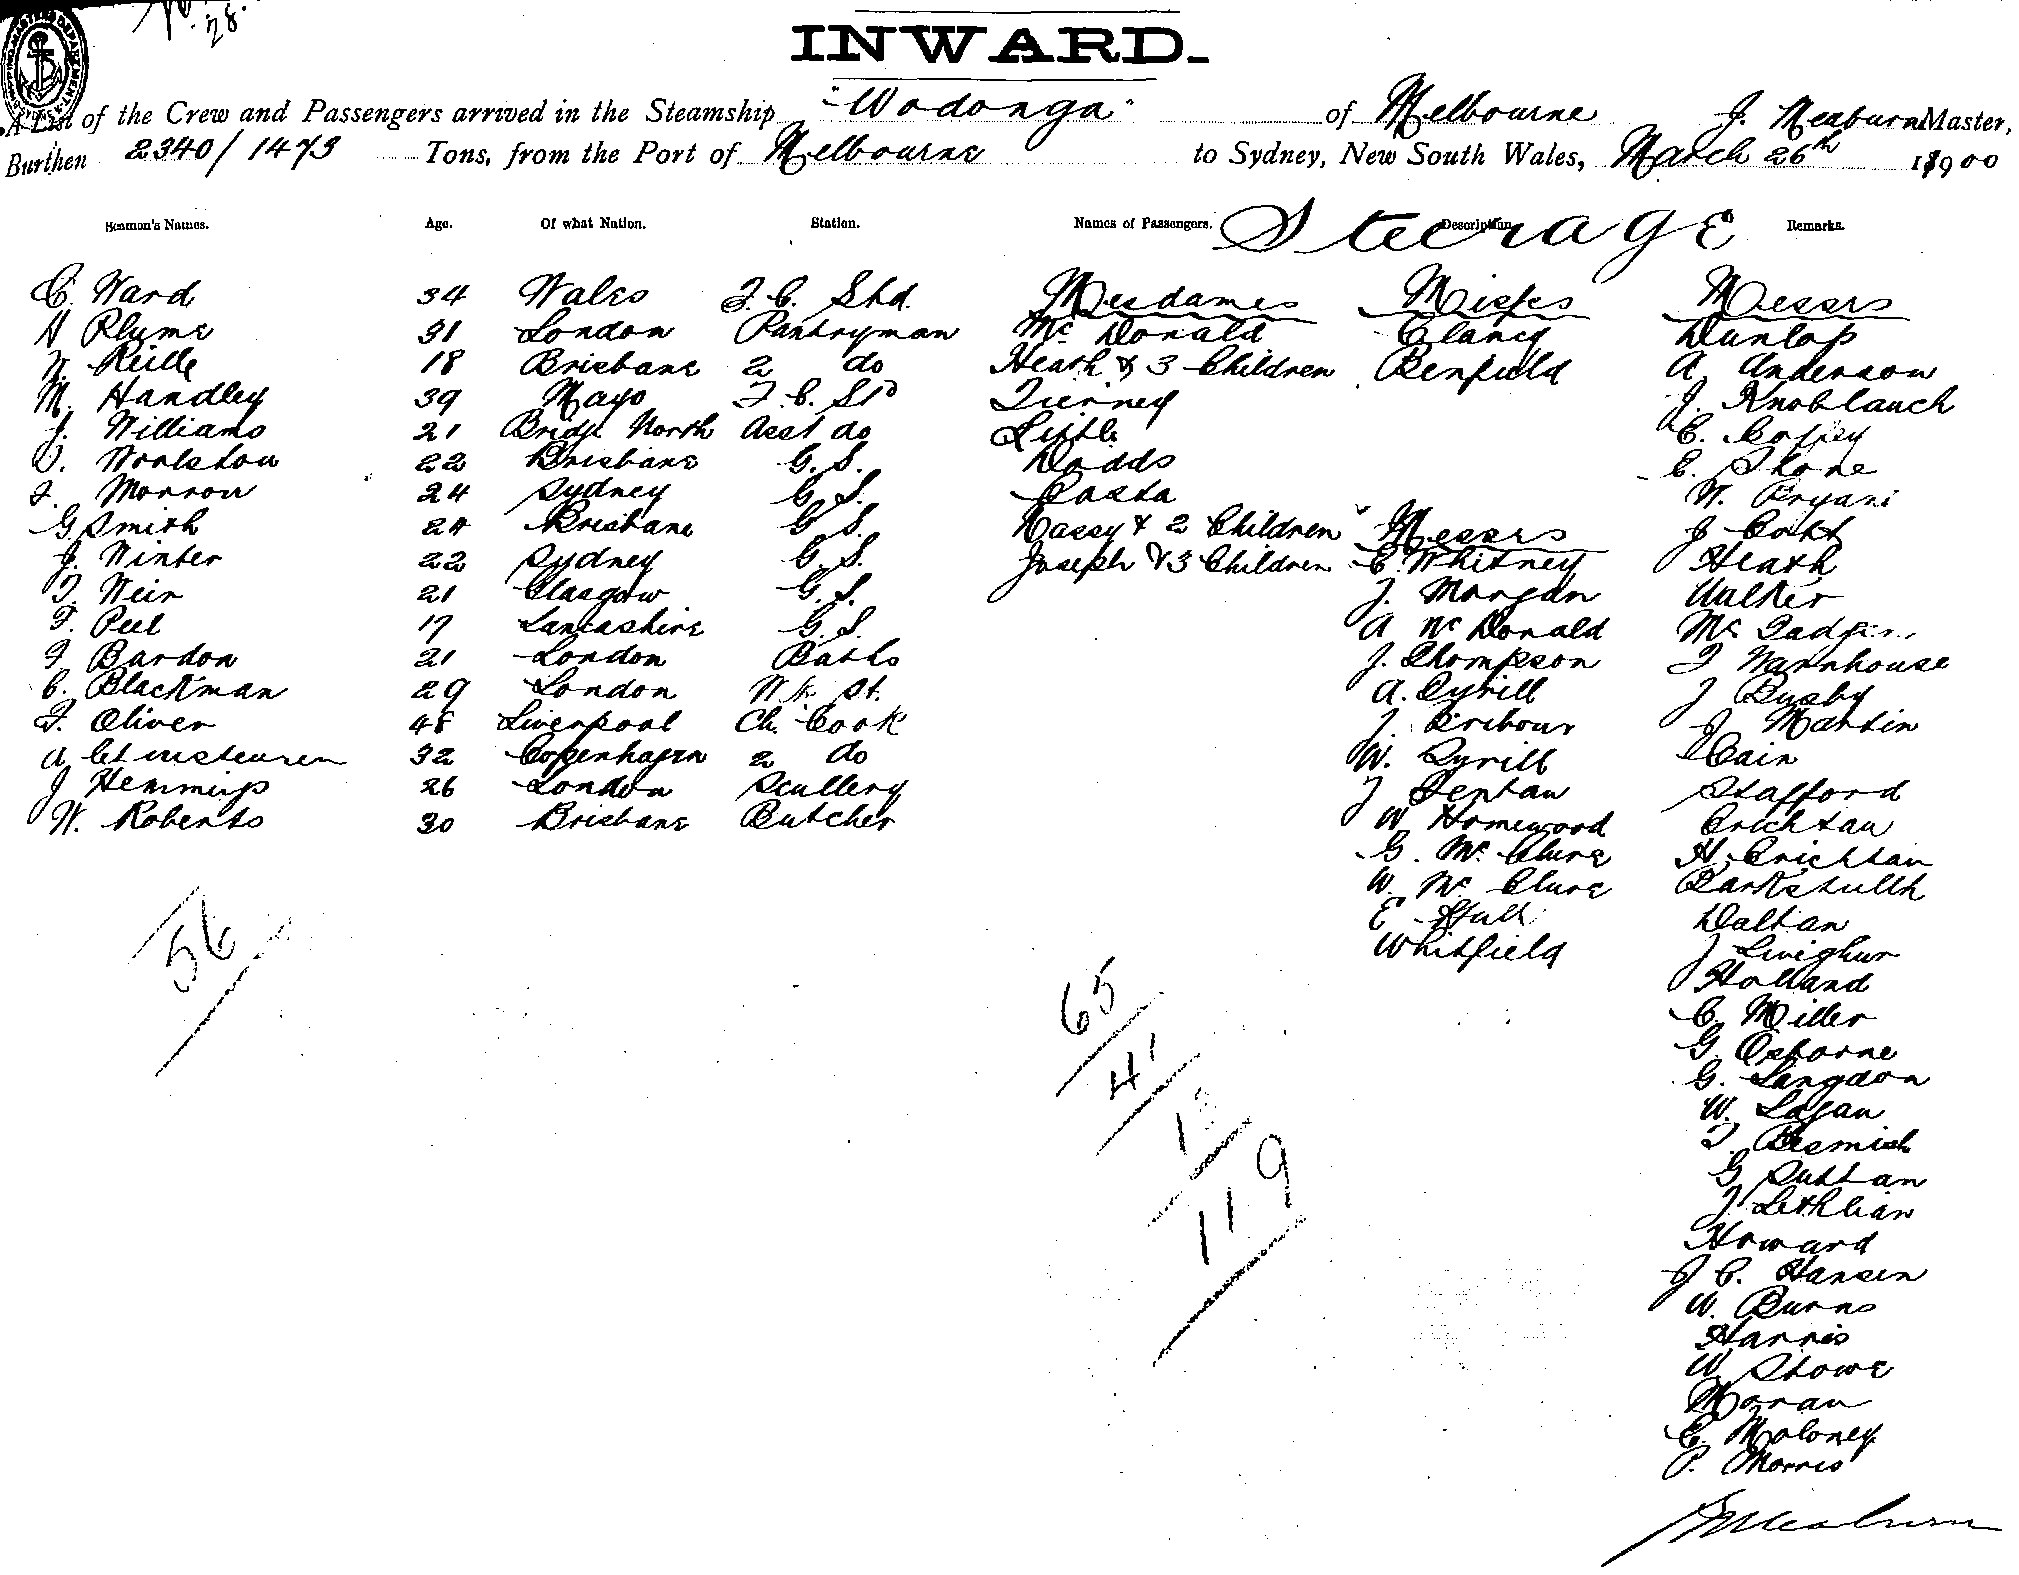 28.
INWARD.
A List of the Crew and Passengers arrived in the Steamship "Wodonga" of Melbourne J. Meaburn Master,
Burthen 2340/1473 Tons, from the Port of Melbourne to Sydney, New South Wales, March 26th 1900
Seamen's Names. Age. Of what Nation. Station. Names of Passengers. Description. Remarks.
Steerage
C. Ward 34 Wales F. C. Std.
H Plume 31 London Pantryman
18 Brisbane 2 do
M. Handley 39 Mayo F. C. Std
J. Williams 21 Bridge North Asst do
Woolston 22 Brisbane G. S.
Morrow 24 Sydney G. S.
G Smith 24 Brisbane G S.
J. Winter 22 Sydney G. S.
T. Weir 21 Glasgow G. S.
F. Peel 17 Lancashire G. S.
F Bardon 21 London Baths
C. Blackman 29 London
F. Oliver 48 Liverpool Ch. Cook
A 32 Copenhagen 2 do
J Hemmings 26 London Scullery
W. Roberts 30 Brisbane Butcher
56
Mesdames
Mc Donald
Heath & 3 Children
Tierney
Little
Dodds
Costa
Massy & 2 Children
Joseph & 3 Children
65
41
13
119
Misses
Clancy
Benfield
Messrs
C. Whitney
J. Morgan
A Mc Donald
J. Thompson
A. Cyrill
J.
W. Cyrill
J Fentan
W Homewood
G. Mc Clure
W. Mc Clure
E Hull
Whitfield
Messrs
Dunlop
A Anderson
J. Knoblauch
C. Coffey
C. Skone
W. Bryant
J Cott
Heath
Walker
Mc
T Warnhouse
J Busby
J Martin
Cain
Stafford
Crichtan
H. Crichtan
Daltan
J
Holland
C. Miller
G. Osborne
G. Langdon
W. Logan
T. Besmish
G Suttan
J. Lethlian
Howard
J C. Hansen
W. Burns
Harris
W. Stowe
Moran
C. Moloney
P. Morris
J Meaburn